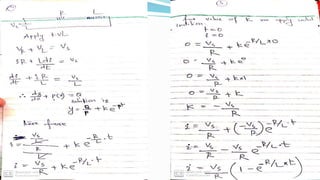 R L
Vs
Apply KVL
VR + VL = Vs
iR + L di/dt = Vs
di/dt + iR/L = Vs/L
∴ dy/dt + P(t) = 0
solution is
y = Q/P + k e^-pt
Here
i = (Vs/L)/(R/L) + k e^-R/L·t
i = Vs/R + k e^-R/L·t
value of K we apply initial
condition
t = 0
i = 0
0 = Vs/R + k e^-R/L×0
0 = Vs/R + k e^0
0 = Vs/R + k×1
0 = Vs/R + k
K = - Vs/R
i = Vs/R + (-Vs/R) e^-R/L·t
i = Vs/R - Vs/R e^-R/L·t
i = Vs/R (1 - e^-R/L×t)